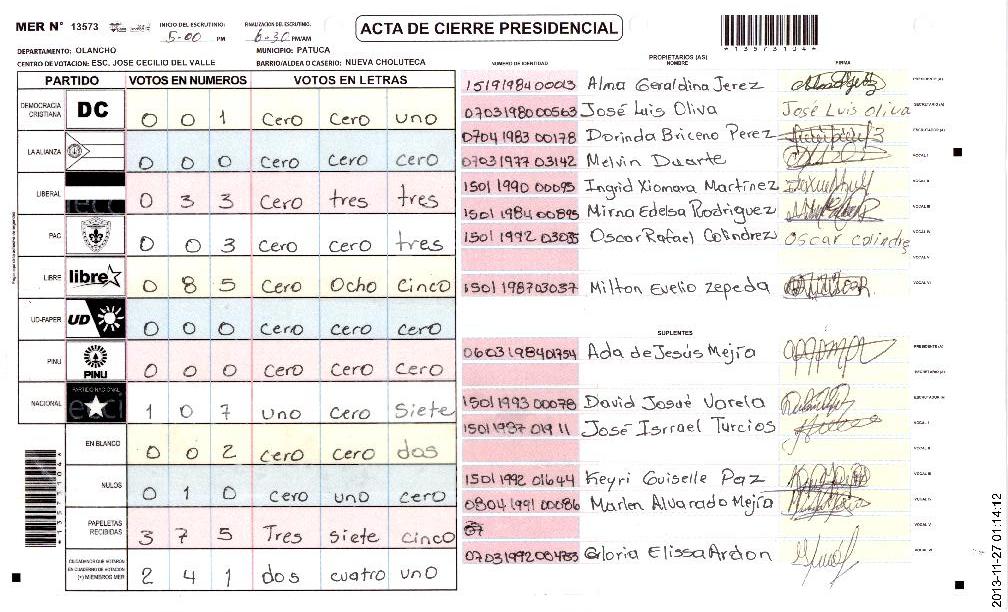 MER N° 13573 INICIO DEL ESCRUTINIO: 5-00 PM FINALIZACION DEL ESCRUTINIO: 6-30 PM/AM
ACTA DE CIERRE PRESIDENCIAL
DEPARTAMENTO: OLANCHO MUNICIPIO: PATUCA
CENTRO DE VOTACION: ESC. JOSE CECILIO DEL VALLE BARRIO/ALDEA O CASERIO: NUEVA CHOLUTECA
PARTIDO VOTOS EN NUMEROS VOTOS EN LETRAS
DEMOCRACIA CRISTIANA DC 0 0 1 Cero Cero uno
LA ALIANZA 0 0 0 Cero Cero Cero
LIBERAL 0 3 3 Cero tres tres
PAC 0 0 3 Cero cero tres
LIBRE libre 0 8 5 Cero Ocho Cinco
UD-FAPER UD 0 0 0 Cero Cero cero
PINU PINU 0 0 0 Cero Cero Cero
NACIONAL PARTIDO NACIONAL 1 0 7 uno cero Siete
EN BLANCO 0 0 2 cero cero dos
NULOS 0 1 0 cero uno cero
PAPELETAS RECIBIDAS 3 7 5 Tres siete cinco
CIUDADANOS QUE VOTARON EN CUADERNO DE VOTACION (+) MIEMBROS MER 2 4 1 dos cuatro uno
PROPIETARIOS (AS)
NUMERO DE IDENTIDAD NOMBRE FIRMA
1519198400013 Alma Geraldina Jerez PRESIDENTE(A)
0703198000563 José Luis Oliva José Luis oliva SECRETARIO(A)
0704 1983 00178 Dorinda Briceno Perez ESCRUTADOR(A)
0703 1977 03142 Melvin Duarte VOCAL I
1501 1990 00095 Ingrid Xiomara Martínez VOCAL II
1501 1984 00895 Mirna Edelsa Rodriguez VOCAL III
1501 1992 03035 Oscar Rafael Colindrez Oscar colindres VOCAL IV
VOCAL V
1501 198703037 Milton Evelio zepeda VOCAL VI
SUPLENTES
0603198401754 Ada de Jesús Mejía PRESIDENTE(A)
SECRETARIO(A)
1501 1993 00078 David Josué Varela ESCRUTADOR(A)
1501 1987 019 11 José Isrrael Turcios VOCAL I
VOCAL II
1501 1992 01644 Keyri Guiselle Paz VOCAL III
0804 1991 00086 Marlen Alvarado Mejía VOCAL IV
VOCAL V
0703199200433 Gloria Elissa Ardon VOCAL VI
2013-11-27 01:14:12